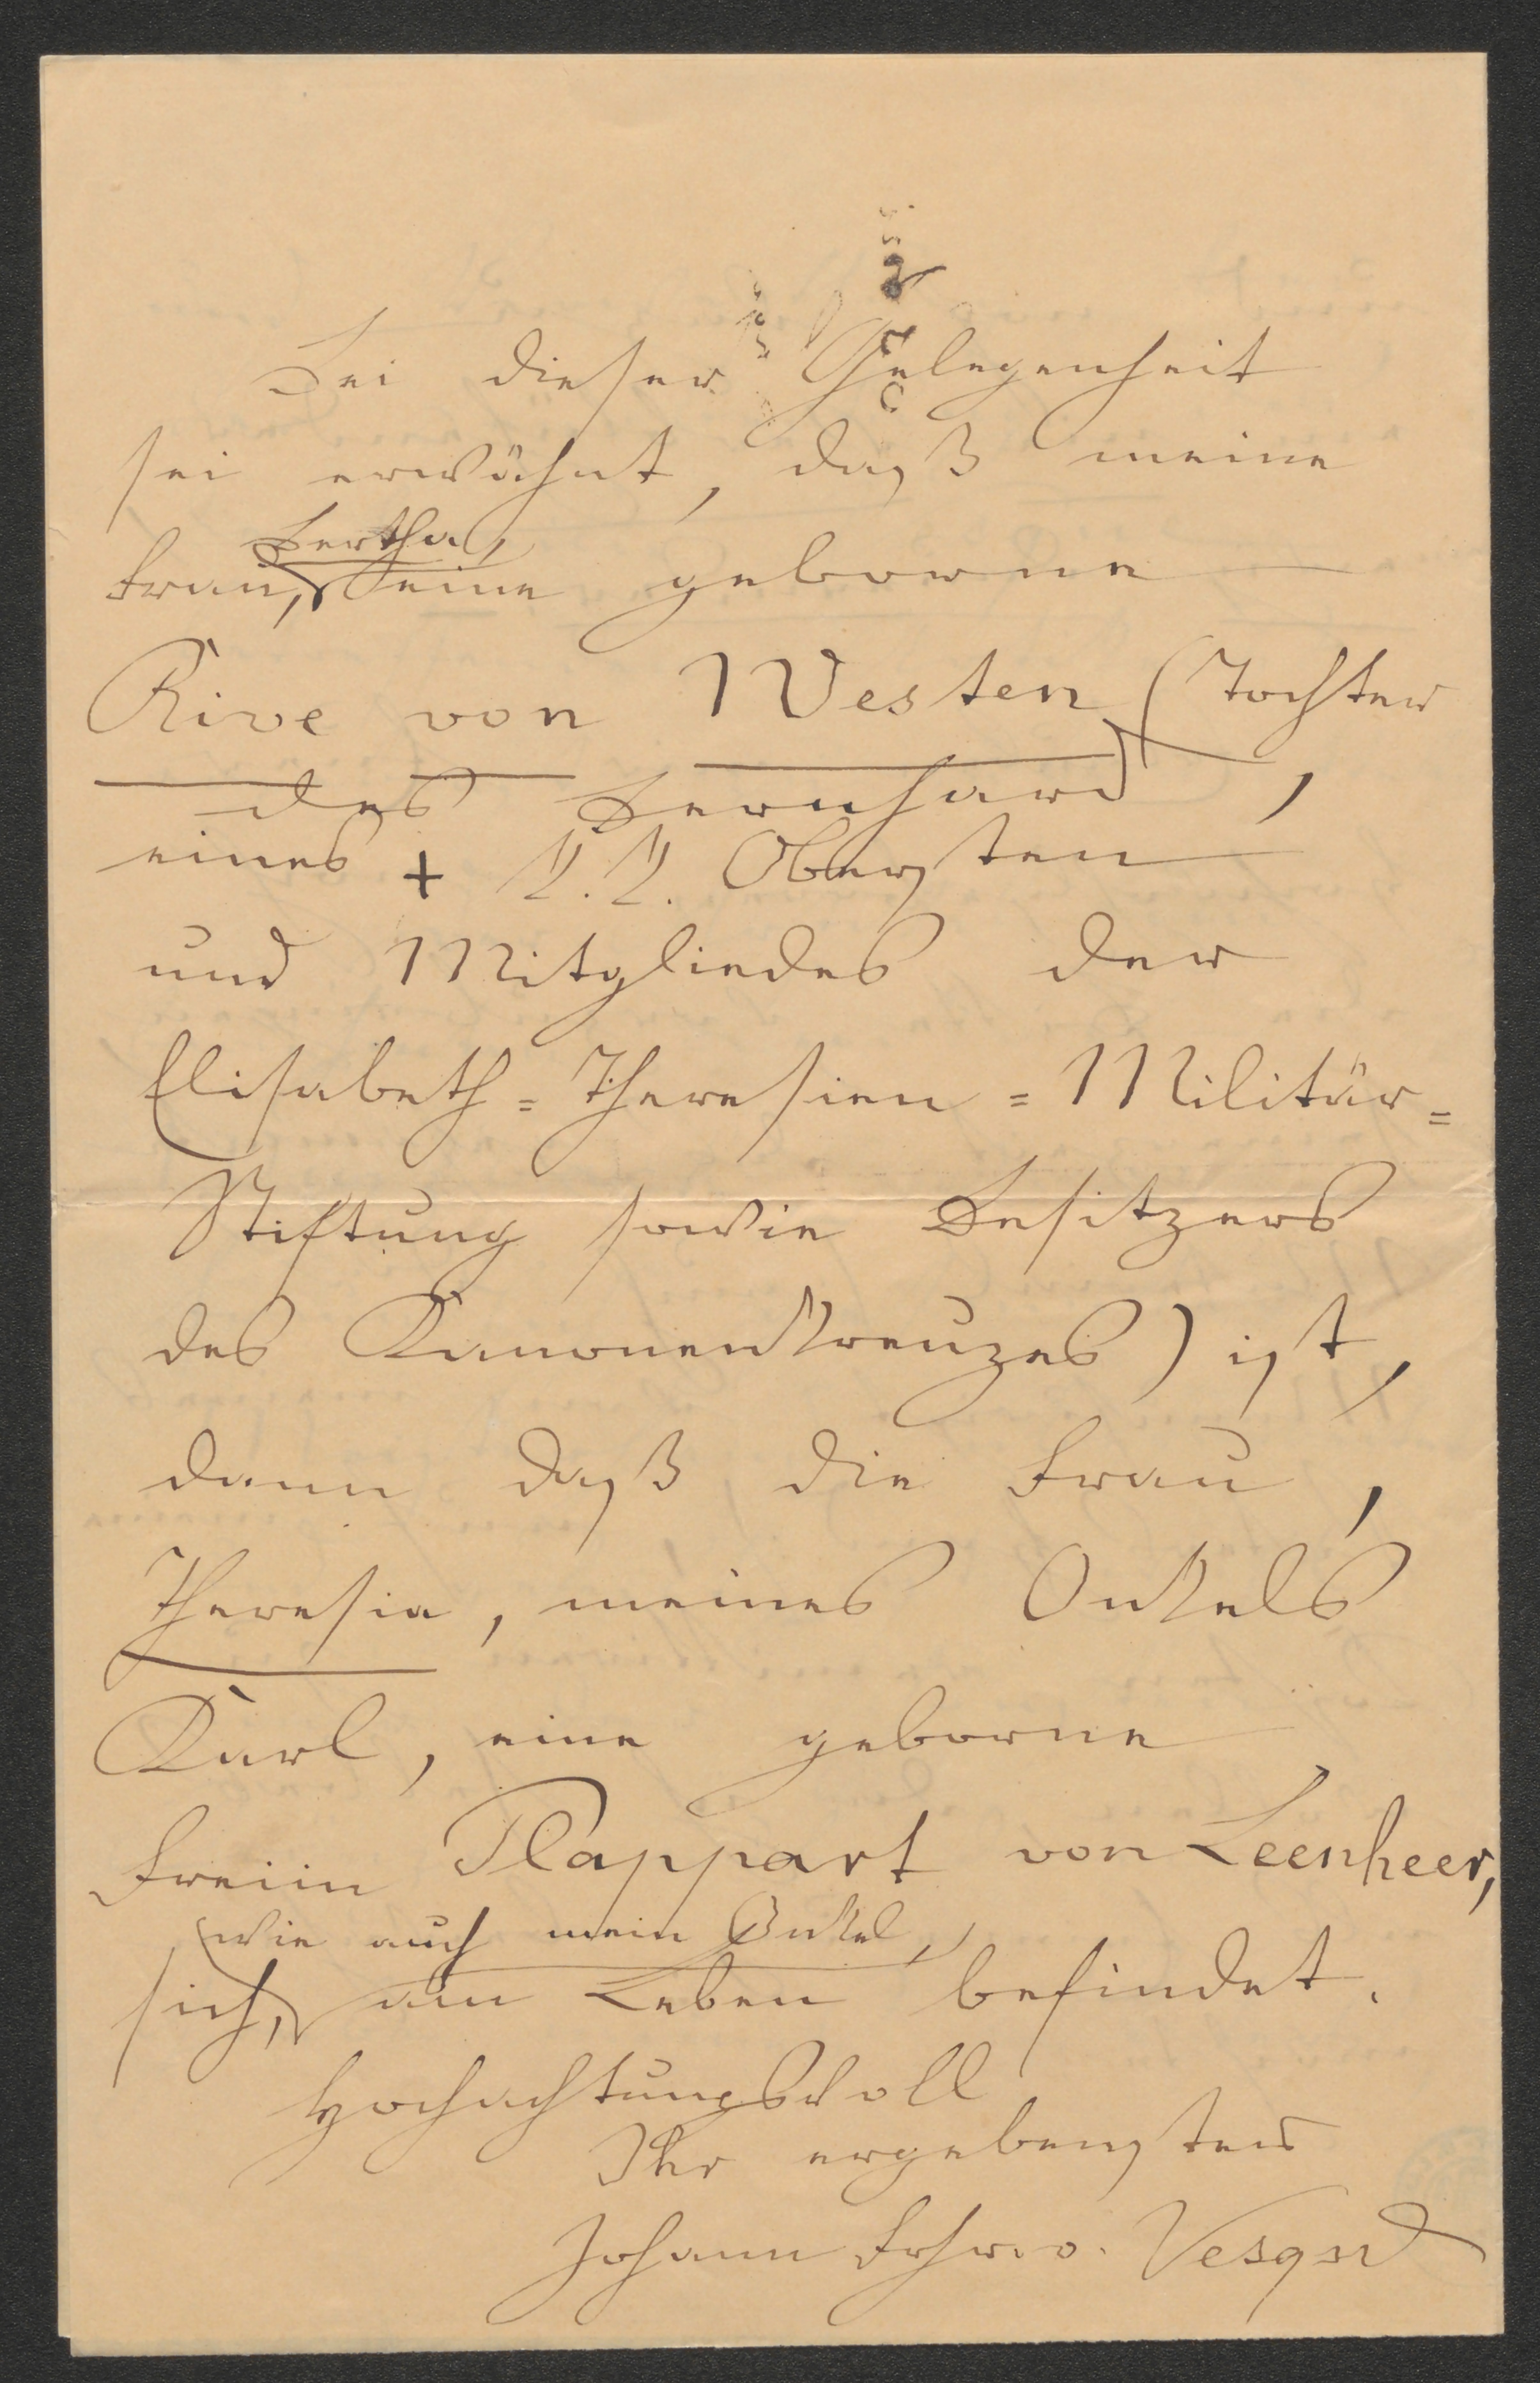 Bei dieser Gelegenheit
sei erwähnt, daß meine
Bertha,
Frau, eine geborne
Rive von Westen (Tochter
des Bernhard,
eines + k. k. Obersten
und Mitgliedes der
Elisabeth=Theresien=Militär=
Stiftung sowie Besitzers
des Kanonenkreuzes) ist,
dann daß die Frau,
Theresia, meines Onkels
Karl, eine geborne
Freiin Plappart von Leenheer,
wie auch mein Onkel,
sich, am Leben befindet.
Hochachtungsvoll
Ihr ergebenster
Johann Frhr. v. Vesque